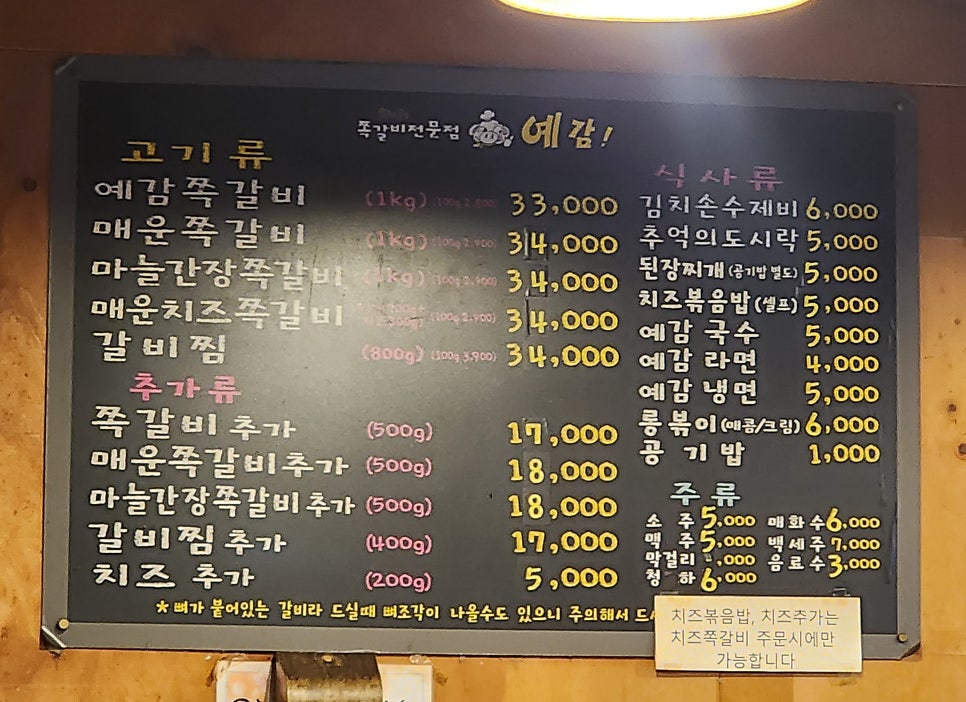 쪽갈비전문점 예감!
고기류
예감쪽갈비 (1kg) (100g 2,800) 33,000
매운쪽갈비 (1kg) (100g 2,900) 34,000
마늘간장쪽갈비 (1kg) (100g 2,900) 34,000
매운치즈쪽갈비 (100g 2,900) 34,000
갈비찜 (800g) (100g 3,900) 34,000
추가류
쪽갈비 추가 (500g) 17,000
매운쪽갈비추가 (500g) 18,000
마늘간장쪽갈비추가 (500g) 18,000
갈비찜추가 (400g) 17,000
치즈 추가 (200g) 5,000
식사류
김치손수제비 6,000
추억의도시락 5,000
된장찌개 (공기밥 별도) 5,000
치즈볶음밥 (셀프) 5,000
예감 국수 5,000
예감 라면 4,000
예감 냉면 5,000
롱볶이 (매콤/크림) 6,000
공기밥 1,000
주류
소주 5,000 매화수 6,000
맥주 5,000 백세주 7,000
막걸리 ,000 음료수 3,000
청하 6,000
*뼈가 붙어있는 갈비라 드실때 뼈조각이 나올수도 있으니 주의해서
치즈볶음밥, 치즈추가는
치즈쪽갈비 주문시에만
가능합니다